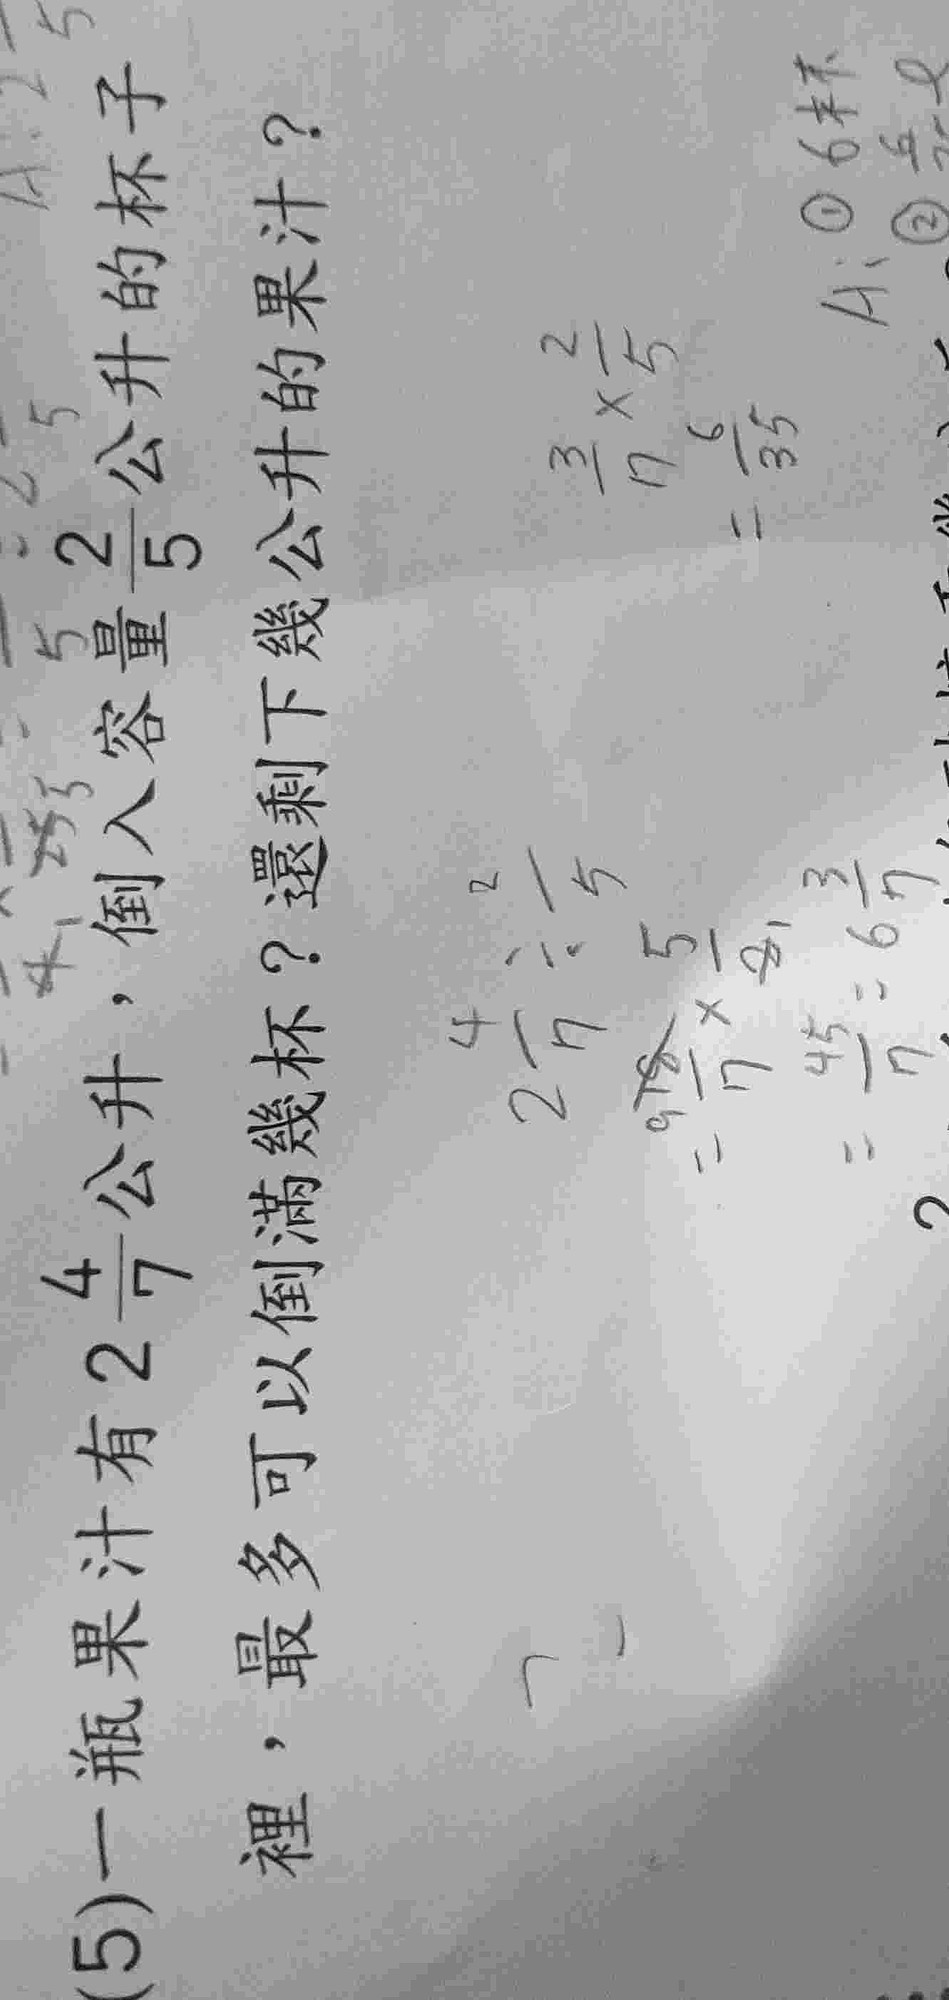 (5)一瓶果汁有2 4/7公升，倒入容量2/5公升的杯子
裡，最多可以倒滿幾杯？還剩下幾公升的果汁？
2 4/7 ÷ 2/5
= 18/7 × 5/2
9 1
= 45/7 = 6 3/7
3/7 × 2/5
= 6/35
A: ① 6杯
② 6/35 ℓ